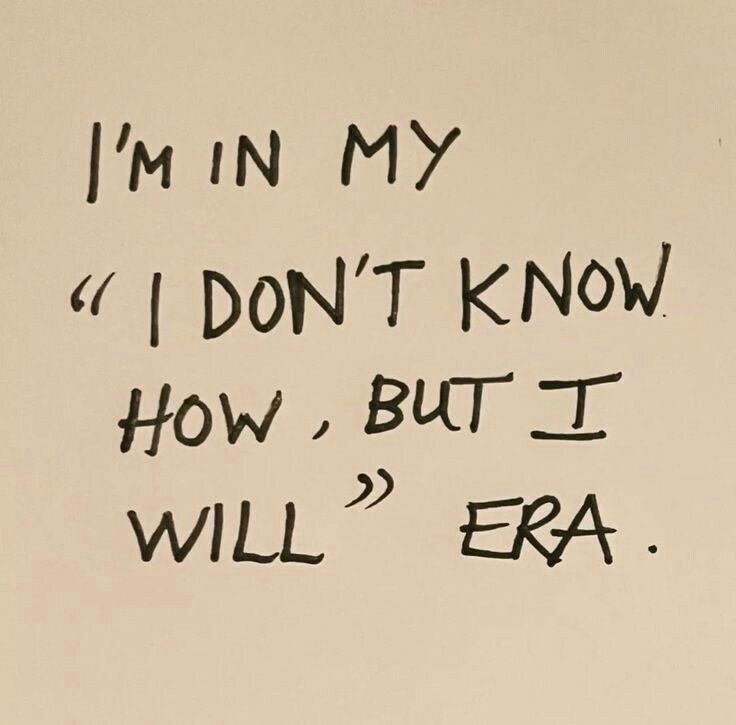 I'M IN MY
“I DON'T KNOW.
HOW, BUT I
WILL” ERA.